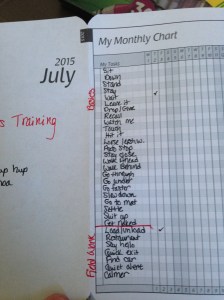 2015
July
s Training
My Monthly Chart
My Tasks
Basics
Sit
Down
Stand
Stay
Wait
Leave it
Drop/Give
Recall
Watch me
Touch
Hit it
Auto Stop
Stay close
Walk Ahead
Walk Behind
Go through
Go under
Go faster
Slow down
Go to mat
Settle
Suit up
Get naked
Field Work
Load/Unload
Restaurant
Say hello
Quick exit
Find car
Quiet alert
Calmer